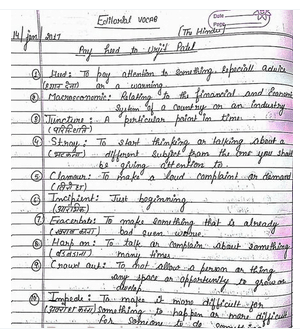 Editorial vocab
(The Hindu)
14/Jan/2017
Pay heed to Urjit Patel
① Heed: To pay attention to something, especially advice
(ध्यान देना) or a warning
② Macroeconomic: Relating to the financial and economic
system of a country or an industry
③ Juncture: A particular point in time.
(परिस्थिति)
④ Stray: To start thinking or talking about a
(भटकना) different subject from the one you should
be giving attention to.
⑤ Clamour: To make a loud complaint or demand
⑥ Incipient: Just beginning
(आरंभिक)
⑦ Exacerbate: To make something that is already
bad even worse.
⑧ Harp on: To talk or complain about something
many times.
⑨ Crowd out: To not allow a person or thing
any space or opportunity to grow or
develop
⑩ Impede: To make it more difficult for
something to happen or more difficult
for someone to do